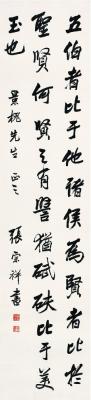 五伯者比于他諸侯為賢者比於
聖賢何賢之有譬猶碔砆比于美
玉也
景先生正之 張宗祥書